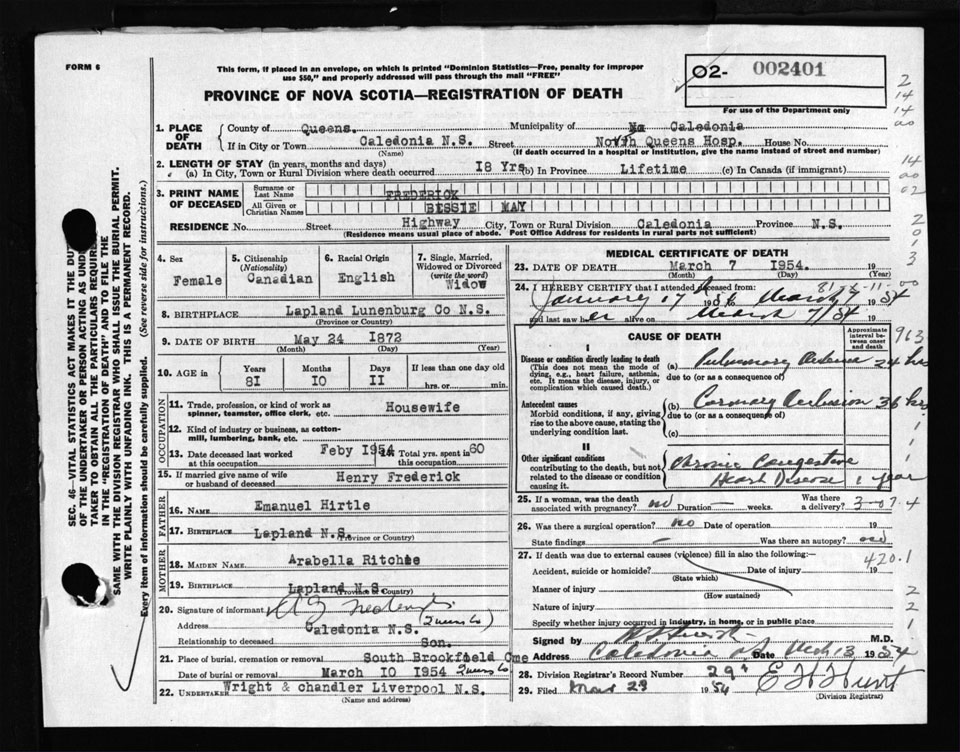 FORM 6
This form, if placed in an envelope, on which is printed "Dominion Statistics—Free, penalty for improper
use $50," and properly addressed will pass through the mail "FREE"
PROVINCE OF NOVA SCOTIA—REGISTRATION OF DEATH
O2- 002401
For use of the Department only
2
14
14
SEC. 46—VITAL STATISTICS ACT MAKES IT THE DUTY
OF THE UNDERTAKER OR PERSON ACTING AS UNDER
TAKER TO OBTAIN ALL THE PARTICULARS REQUIRED
IN THE "REGISTRATION OF DEATH" AND TO FILE THE
SAME WITH THE DIVISION REGISTRAR WHO SHALL ISSUE THE BURIAL PERMIT.
WRITE PLAINLY WITH UNFADING INK. THIS IS A PERMANENT RECORD.
Every item of information should be carefully supplied. (See reverse side for instructions.)
1. PLACE OF DEATH
County of Queens. Municipality of No Caledonia
If in City or Town Caledonia N.S. Street North Queens Hosp. House No.
(Name) (If death occurred in a hospital or institution, give the name instead of street and number)
2. LENGTH OF STAY (in years, months and days)
(a) In City, Town or Rural Division where death occurred 18 Yrs (b) In Province Lifetime (c) In Canada (if immigrant)
14
02
3. PRINT NAME OF DECEASED
Surname or Last Name FREDERICK
All Given or Christian Names BESSIE MAY
RESIDENCE No. Street Highway City, Town or Rural Division Caledonia Province N.S.
(Residence means usual place of abode. Post Office Address for residents in rural parts not sufficient)
2
0
1
3
4. Sex
Female
5. Citizenship
(Nationality)
Canadian
6. Racial Origin
English
7. Single, Married,
Widowed or Divorced
(write the word)
Widow
8. BIRTHPLACE Lapland Lunenburg Co N.S.
(Province or Country)
9. DATE OF BIRTH May 24 1872
(Month) (Day) (Year)
10. AGE in
Years Months Days If less than one day old
81 10 11 hrs. or min.
OCCUPATION
11. Trade, profession, or kind of work as
spinner, teamster, office clerk, etc. Housewife
12. Kind of industry or business, as cotton-
mill, lumbering, bank, etc.
13. Date deceased last worked
at this occupation Feby 1954
14. Total yrs. spent in
this occupation 60
15. If married give name of wife
or husband of deceased Henry Frederick
FATHER
16. NAME Emanuel Hirtle
17. BIRTHPLACE Lapland N.S.
(Province or Country)
MOTHER
18. MAIDEN NAME Arabella Ritchie
19. BIRTHPLACE Lapland N.S.
(Province or Country)
20. Signature of informant
Address Caledonia N.S. (Queens Co)
Relationship to deceased Son.
21. Place of burial, cremation or removal South Brookfield Cme
Date of burial or removal March 10 1954 Queens Co
22. UNDERTAKER Wright & chandler Liverpool N.S.
(Name and address)
MEDICAL CERTIFICATE OF DEATH
23. DATE OF DEATH March 7 1954. 19
(Month) (Day) (Year)
24. I HEREBY CERTIFY that I attended deceased from:
January 17 March 7 1954
and last saw her alive on March 7/54
CAUSE OF DEATH
Approximate
interval be-
tween onset
and death
963
I
Disease or condition directly leading to death
(This does not mean the mode of
dying, e.g., heart failure, asthenia,
etc. It means the disease, injury, or
complication which caused death.)
(a) Pulmonary Oedema 24 hrs
due to (or as a consequence of)
Antecedent causes
Morbid conditions, if any, giving
rise to the above cause, stating the
underlying condition last.
(b) Coronary Occlusion 36 hrs
due to (or as a consequence of)
(c)
II
Other significant conditions
contributing to the death, but not
related to the disease or condition
causing it.
Chronic Congestive
Heart Disease 1 year
25. If a woman, was the death
associated with pregnancy? no Duration — weeks. Was there
a delivery?
3-07.4
26. Was there a surgical operation? no Date of operation 19
State findings — Was there an autopsy?
27. If death was due to external causes (violence) fill in also the following:—
420.1
Accident, suicide or homicide? Date of injury 19
(State which)
Manner of injury
(How sustained)
Nature of injury
2
2
1
Specify whether injury occurred in industry, in home, or in public place
Signed by M.D.
Address Caledonia Date Mch 13 1954
28. Division Registrar's Record Number 291
29. Filed Mar 29 1954
(Division Registrar)